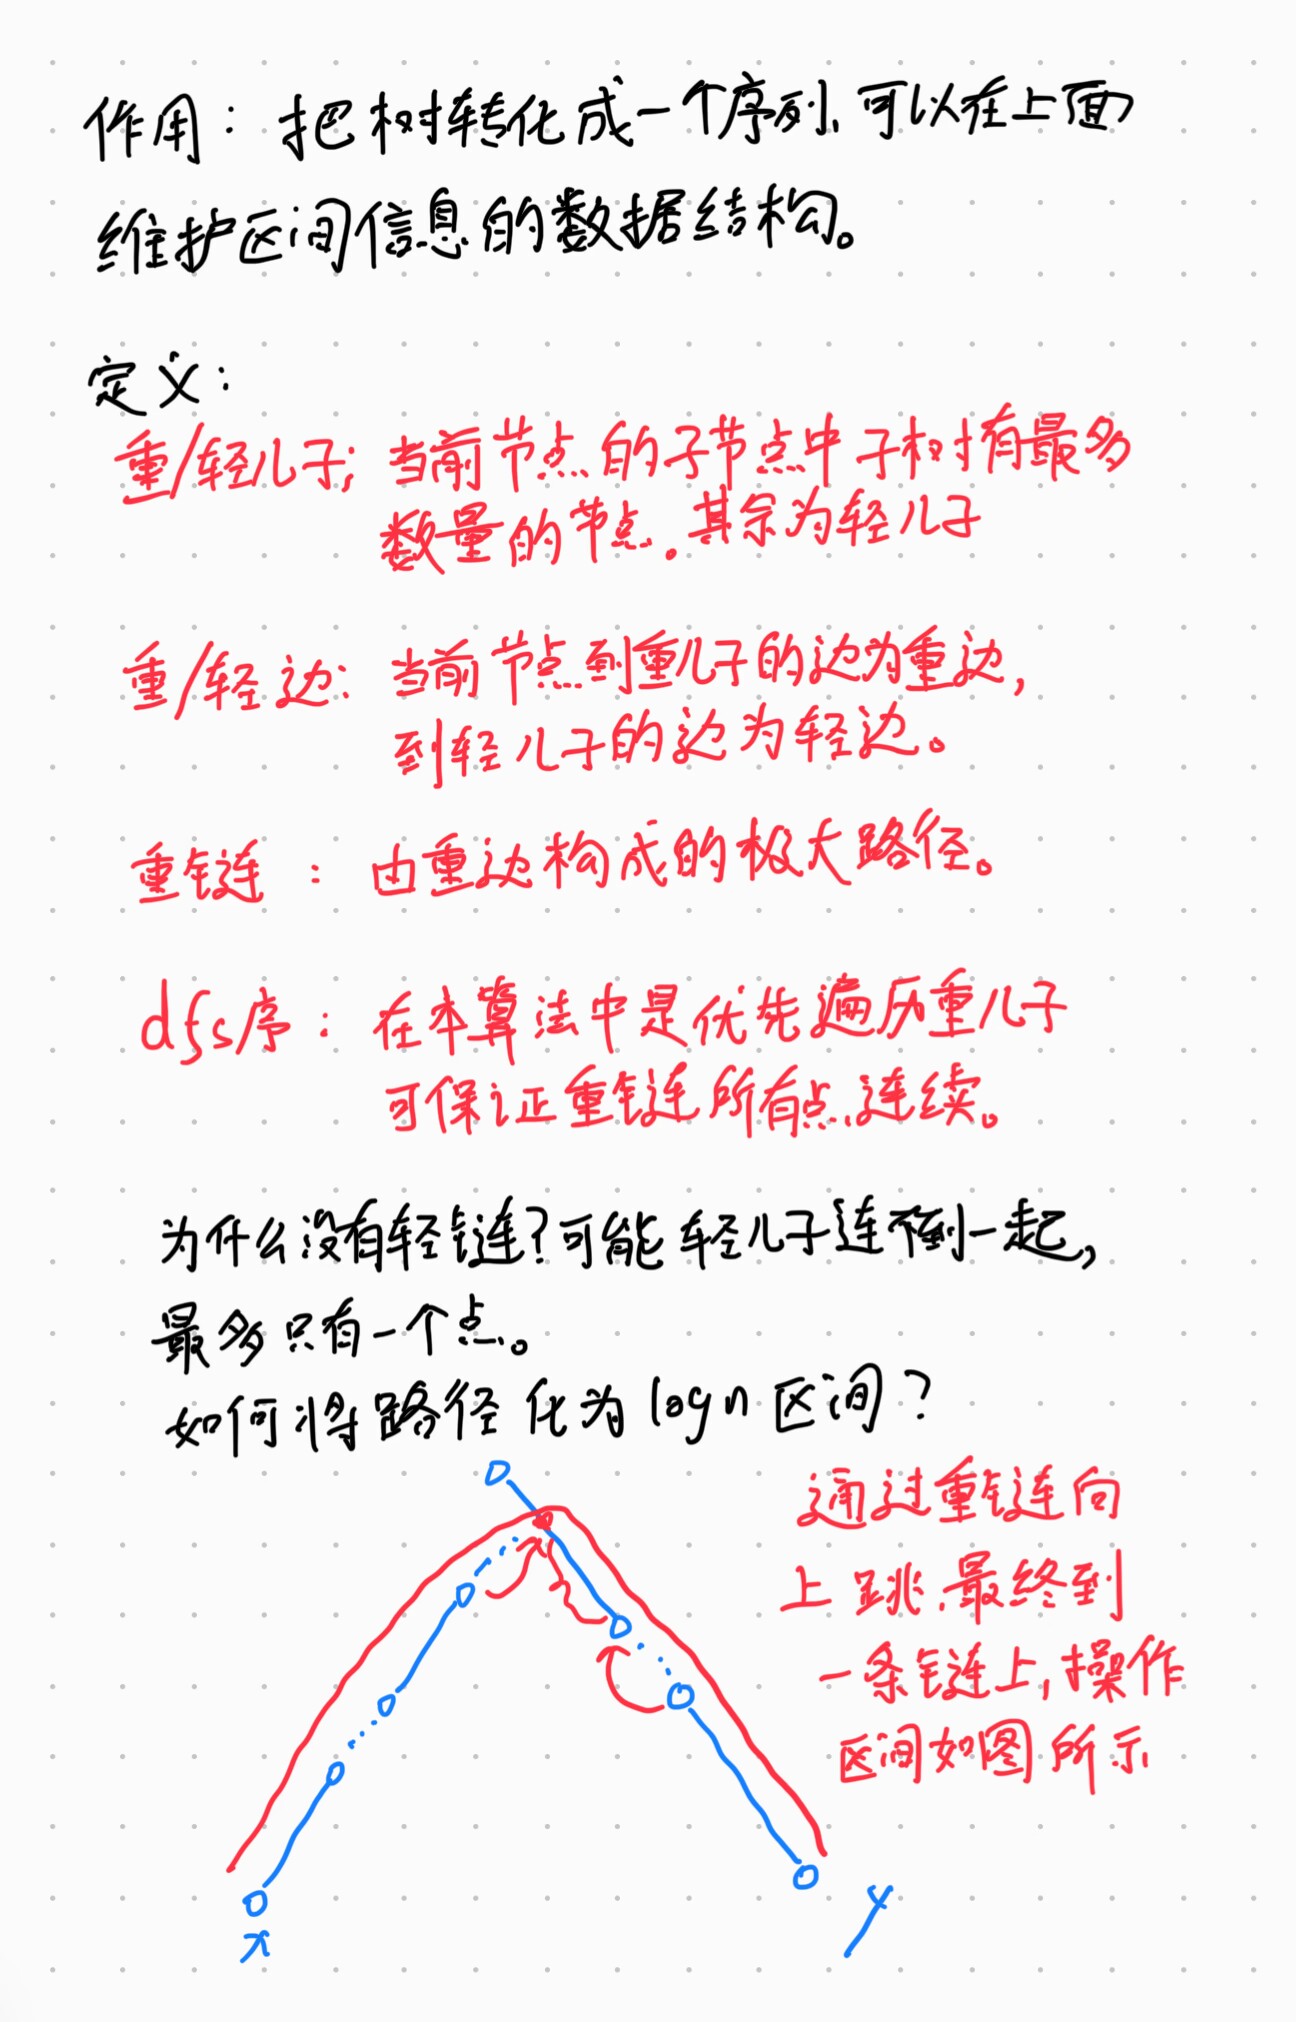 作用：把树转化成一个序列，可以在上面
维护区间信息的数据结构。
定义：
重/轻儿子：当前节点的子节点中子树有最多
数量的节点．其余为轻儿子
重/轻边：当前节点到重儿子的边为重边，
到轻儿子的边为轻边。
重链：由重边构成的极大路径。
dfs序：在本算法中是优先遍历重儿子
可保证重链所有点连续。
为什么没有轻链？可能轻儿子连不到一起，
最多只有一个点。
如何将路径化为logn区间？
通过重链向
上跳，最终到
一条链上，操作
区间如图所示
x
y